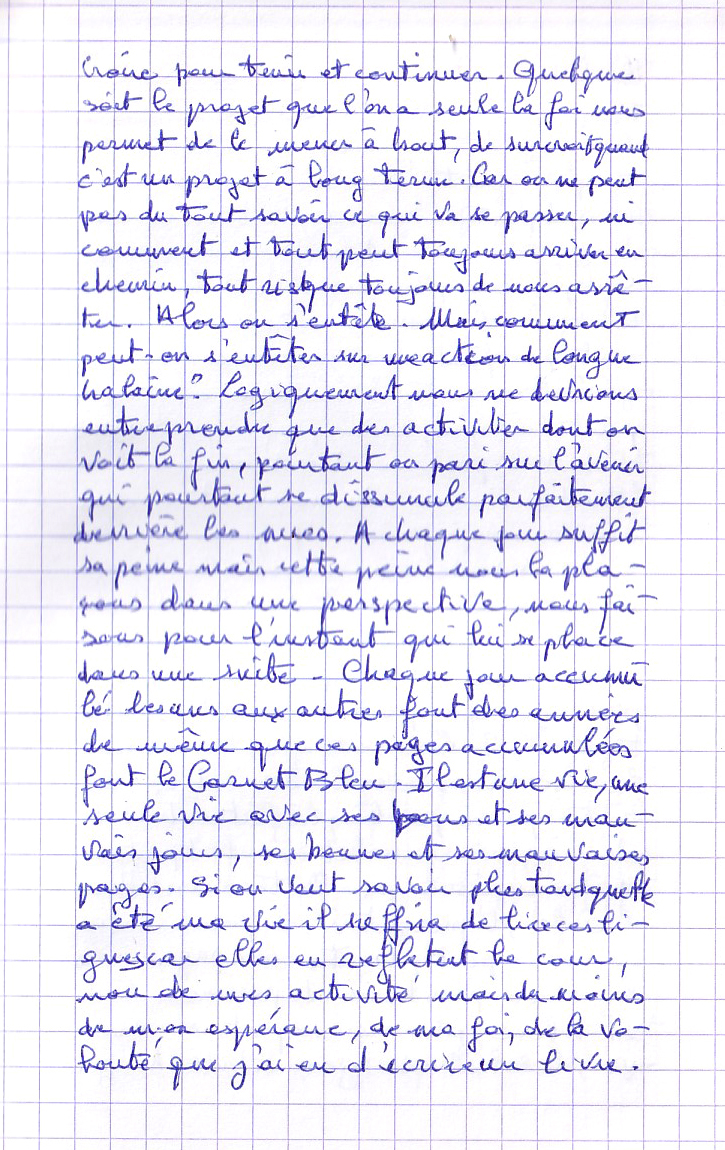 Croire pour tenir et continuer. Quelque
soit le projet que l'on a seule la foi nous
permet de le mener à bout, de surcroit quand
c'est un projet à long terme. Car on ne peut
pas du tout savoir ce qui va se passer, ni
comment et tout peut toujours arriver en
chemin, tout risque toujours de nous arrê-
ter. Alors on s'entête. Mais comment
peut-on s'entêter sur une action de longue
haleine? Logiquement nous ne devrions
entreprendre que des activités dont on
voit la fin, pourtant on pari sur l'avenir
qui pourtant se dissimule parfaitement
derrière les nues. A chaque jour suffit
sa peine mais cette peine nous la pla-
çons dans une perspective, nous fai-
sons pour l'instant qui lui se place
dans une suite. Chaque jour accumu
lé les uns aux autres font des années
de même que ces pages accumulées
font le Carnet Bleu. Il est une vie, une
seule vie avec ses bons et ses mau-
vais jours, ses bonnes et ses mauvaises
pages. Si on veut savoir plus tard quelle
a été ma vie il suffira de lire ces li-
gnes car elles en reflètent le cour,
non de mes activité mais du moins
de mon espérance, de ma foi, de la vo-
lonté que j'ai eu d'écrire un livre.